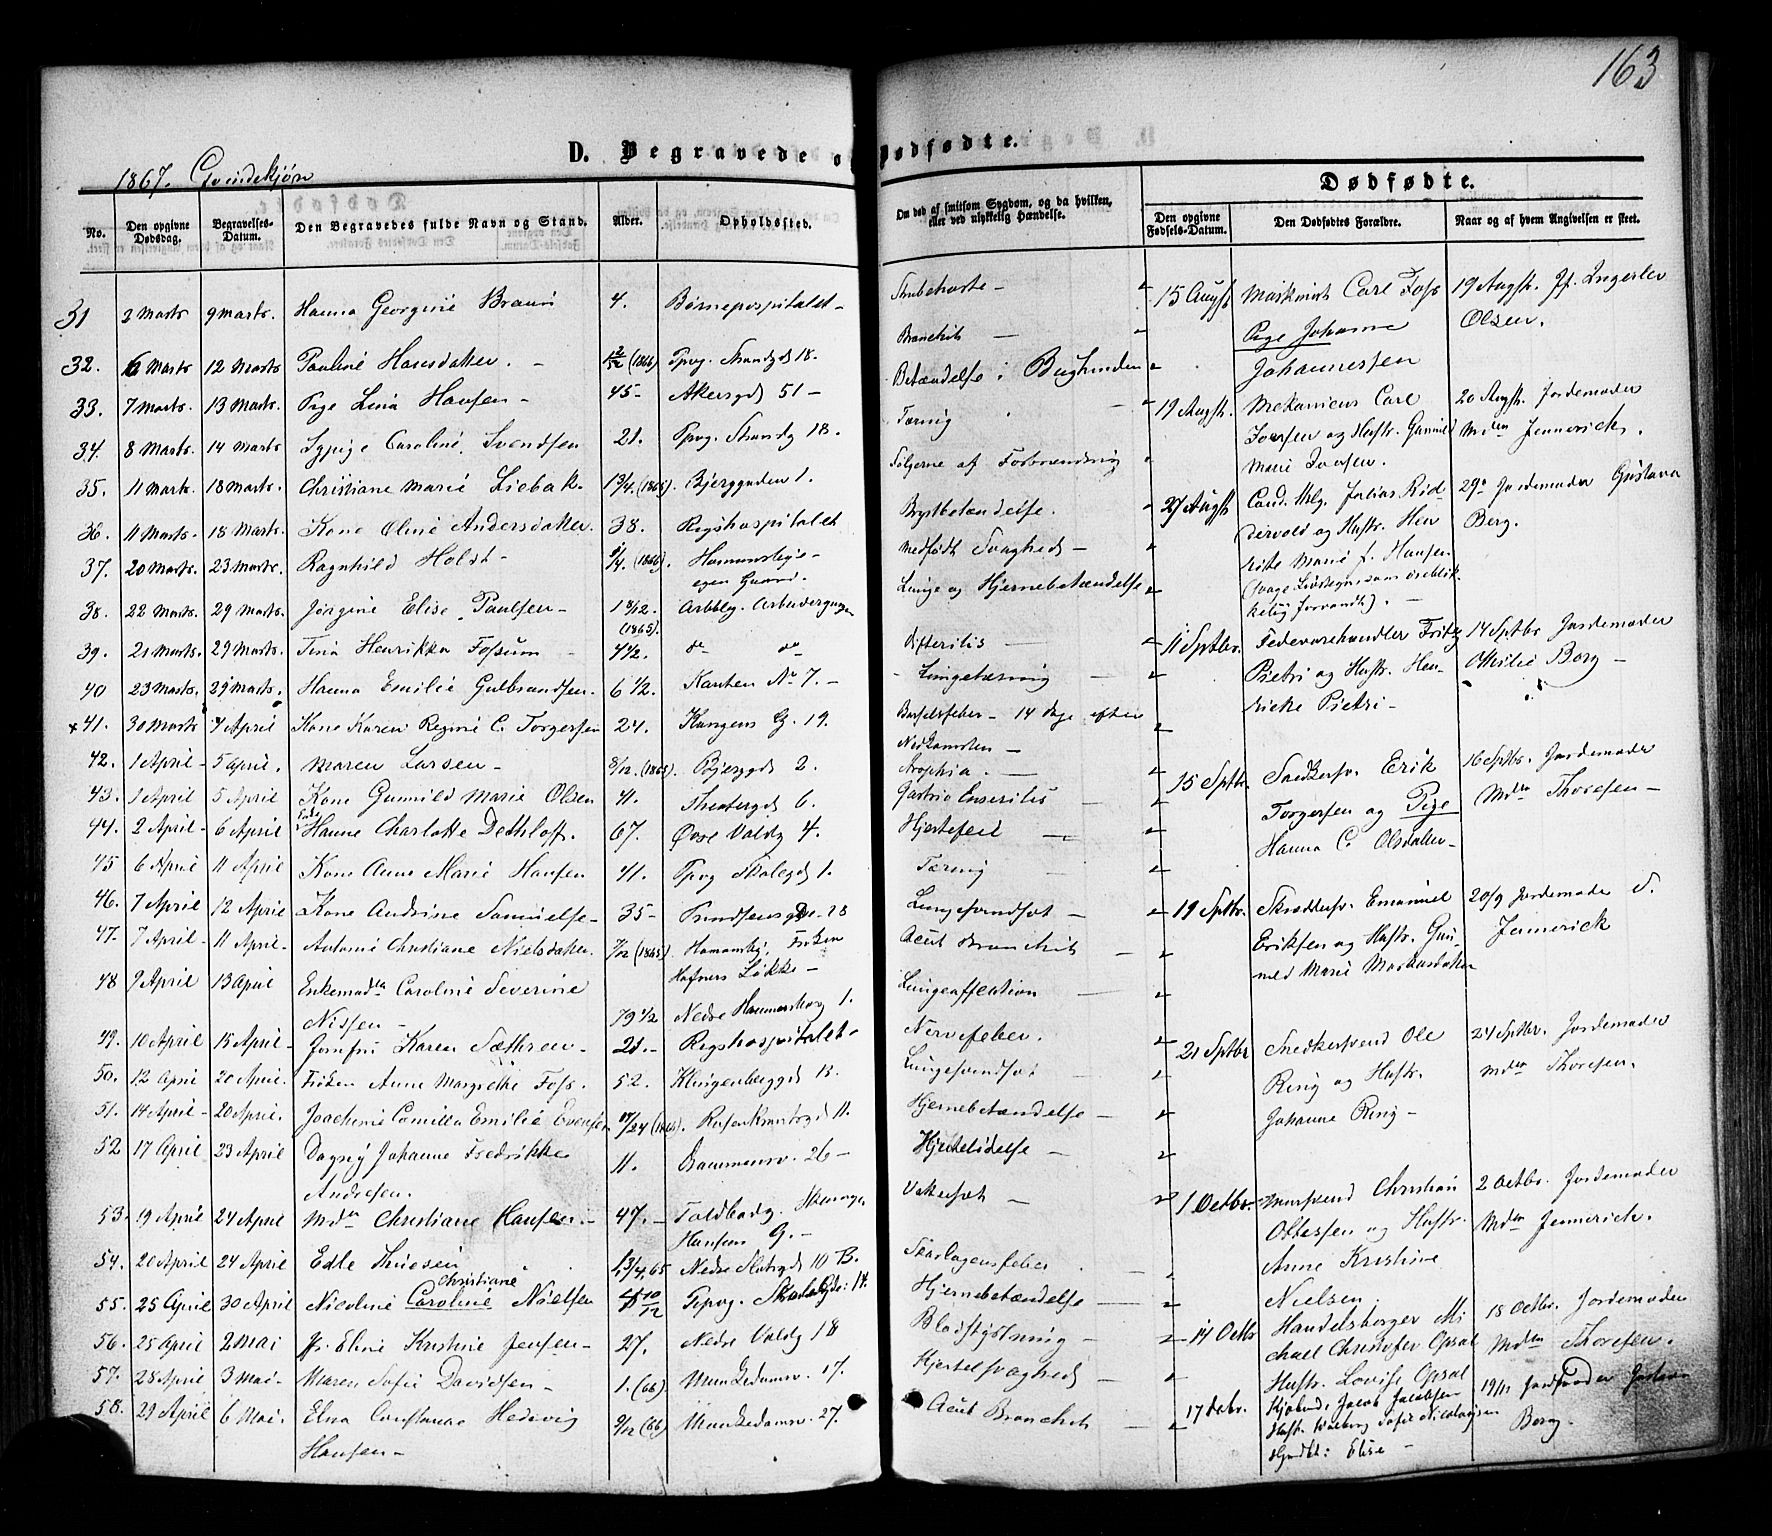 163
D. Begravede o Dødfødte.
1867. Qvindekjøn
Dødfødte.
No.
Den opgivne Dødsdag.
Begravelses-Datum.
Den Begravedes fulde Navn og Stand.
Alder.
Opholdssted.
Om død af smitsom Sygdom, og da hvilken, eller ved ulykkelig Hændelse.
Den opgivne Fødsels-Datum.
Den Dødfødtes Forældre.
Naar og af hvem Angivelsen er skeet.
31 3 Marts 9 Marts. Hanna Georgine Braun 4. Børnehospitalet - Strubehoste -
32. 6 Marts 12 Marts Pauline Hansdatter. - 2/12 (1866) Tpvg. Strandgd 18. Bronchit -
33. 7 Marts. 13 Marts. Pige Lina Hansen - 45 - Akersgd 51 - Betændelse i Bughinden
34. 8 Marts. 14 Marts. Sypige Caroline Svendsen 21. Tpvg. Strandg 18. Tæring
35. 11 Mark. 18 Marts. Christiane Marie Liebak - 1 3/4. (1865). Bjerggaden 1. Følgerne af Forbrænding
36. 11 Marts. 18 Marts. Kone Oline Andersdatter. 38. Rigshospitalet Brystbetændelse.
37. 20 Marts. 23 Marts. Ragnhild Holst - 1/4. (1866). Homansbye - egen Gaard. Medfødt Svaghed -
38. 22 Marts. 29 Marts. Jørgine Elise Paulsen - 1 8/12. (1865). Arbblg. Arbeidergangen Lunge og Hjernebetændelse
39. 21 Marts. 29 Marts. Tina Henrikka Fossum 4 1/2. do do Difteritis -
40 23 Marts. 29 Marts. Hanna Emilie Gulbrandsen. 6 1/2. Kanten No 7. - Lungetæring -
x 41. 30 Marts 4 April Kone Karen Regine C. Torgersen 24. Kongens G. 19. Barselfeber - 14 Dage efter Nedkomsten -
42. 1 April - 5 April. Maren Larsen - 8/12. (1865). Bjerggd 2. Atrophia. -
43. 1 April 5 April Kone Gunnild Marie Olsen 41. Theatergd 6. Gastrio Enteritis
44. 2 April - 6 April Hanne Charlotte Dethloff. 67. Øvre Voldg 4. Hjertefeil -
45 6 April 11 April Kone Anne Marie Hansen 41. Tpvg Skolegd 1. Tæring -
46. 7 April 12 April Kone Andrine Samuelse - 35 - Lungesvindsot -
47. 7 April - 11 April - Antonie Christiane Nielsdatter. 7/12 (1865) Homansbj. Frøken Hafners Løkke - Acut Bronchit
48 9 April 13 April Enkemadm Caroline Severine Nissen - 79 1/2 Nedre Hammersborg 1. Lungeaffection
49. 10 April 15 April - Jomfru Karen Sæthren - 21. - Rigshospitalet - Nervefeber.
50. 12 April 20 April. Frøken Anne Margrethe Foss. 52. Klingenberggd B. Lungesvindsot -
51. 14 April - 20 April. Joachime Camilla Emilie Evensen 17/24 (1866). Rosenkrantzgd 11. Hjernebetændelse -
52 17 April 23 April Dagny Johanne Fredrikke Andresen. 11. Drammensv. 26 - Hjertelidelse -
53. 19 April 24 April Mdm Christiane Hansen. - 47. - Toldbodg. Hansens G. - Vattersot -
54. 20 April 24 April Edle Thuesen 1 3/4, 65 Nedre Slotsgd 10 B. Skarlagensfeber.
55. 25 April 30 April Nicoline Caroline Christiane Nielsen 10/12 Tpvg. Hjernebetændelse -
56. 25 April 2 Mai Jfr. Eline Kristine Jensen - 27. Nedre Voldg 18 Blodstyrtning -
57. 28 April 3 Mai - Maren Sofie Davidsen - 1. (66) Munkedamsv. 17. Hjertesvaghed -
58. 29 April 6 Mai. Elna Constance Hedevig Hansen - 9/12 (66) Munkedamsv. 27. Acut Bronchit -
15 Augst Maskinist Carl Foss Pige Johanne Johannessen 19 Augst. Jf. Ingerlev Olsen.
19 Augst. Mekanicus Carl Iversen og Hustr. Gunnild Marie Iversen. 20 Augst. Jordemoder Mdm Jennerich.
27 Augst Cand. Thlg. Julius Riddervold og Hustr. Henriette Marie f. Hansen (svage Livstegn som øieblikkelig forsvandt). - 29de Jordemoder Gustava Berg.
11 Septbr. Fedevarehandler Fritz Pietri og Hustr. Henrikke Pietri - 14 Septbr Jordemoder Othilie Borg -
15 Septbr. Snedkersv. Erik Torgersen og Pige Hanna C. Olsdatter - 16 Septbr. Jordemoder Mdm Thoresen -
19 Septbr. Skræddersv. Emanuel Eriksen og Hustr. Gunnild Marie Markusdatter 20/9 Jordemoder S. Jennerich
21 Septbr Snedkersvend Ole Ring og Hustr. Johanne Ring - 24 Septbr. Jordemoder Mdm Thoresen.
1 Octbr. Mursvend Christian Ottesen og Hustr. Anne Kristine Nielsen. 2 Octbr. Jordemoder Mdm Jennerich.
14 Octbr Handelsborger Michael Christofer Opsal Hustr. Lovise Opsal 18 Octbr. Jordemoder Mdm Thoresen.
17 Jacob Jacobsen Hustr. Walborg Sofie Nicolaysen Elise - 19/11 Jordmoder Gustava Berg.